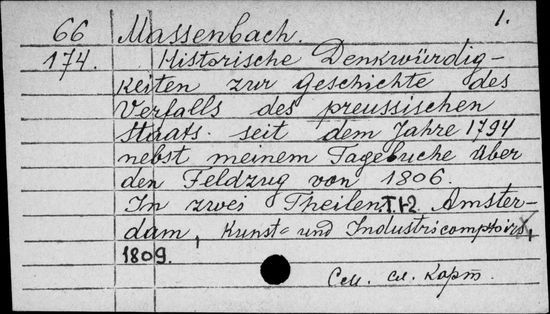 1.
66 Massenbach.
174. Historische Denkwürdig-
keiten zur Geschichte des
Verfalls des preussischen
Staats seit dem Jahre 1794
nebst meinem Tagebuche über
den Feldzug von 1806.
In zwei Theilen. T.1-2. Amster-
dam, Kunst= und Industriecomptoirs,
1809.
см. карт.